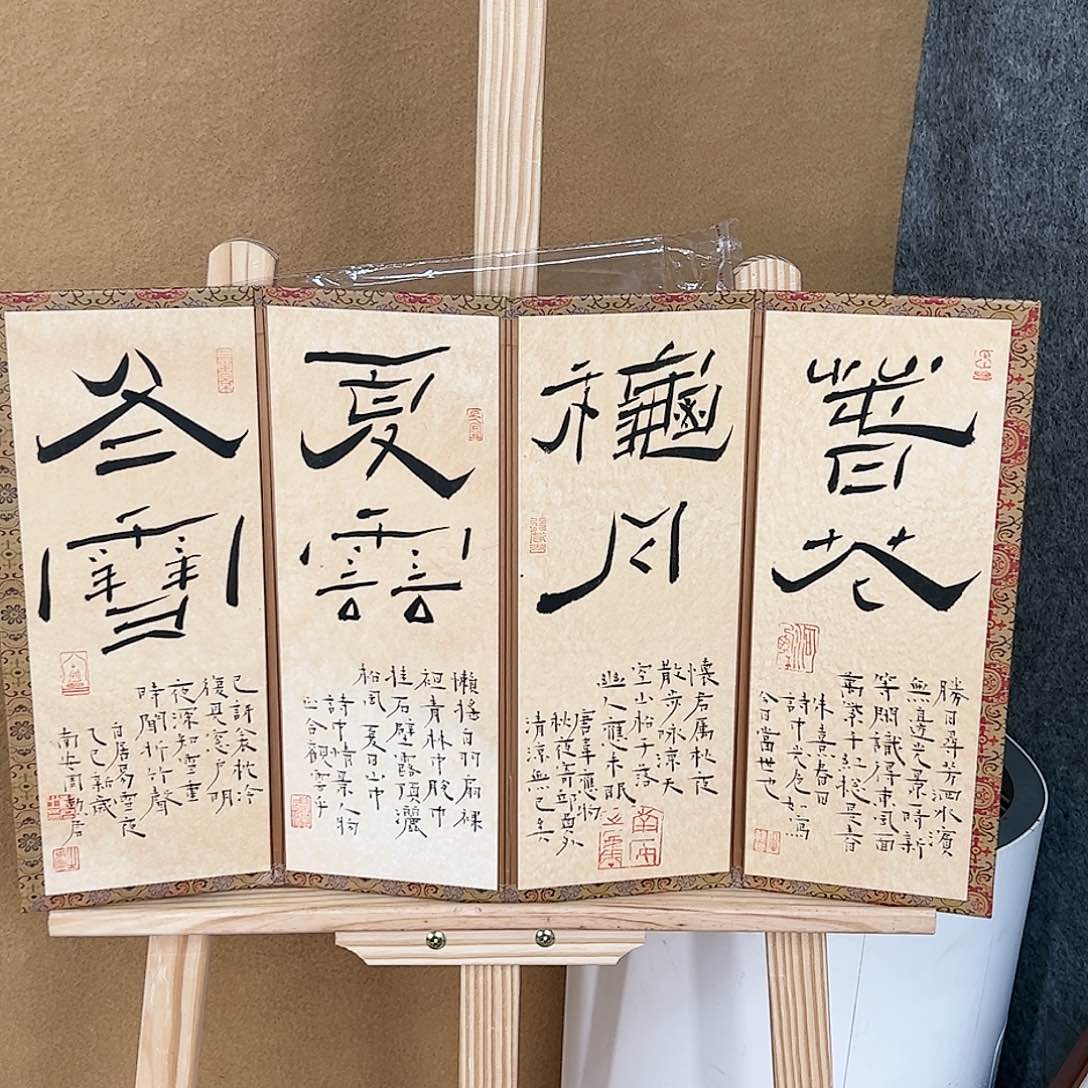 春
花
勝日尋芳泗水濱
無邊光景一時新
等閑識得東風面
萬紫千紅總是春
朱熹春日
詩中光色如寫
今日當世也
穐
月
懷君屬秋夜
散步咏涼天
空山松子落
幽人應未眠
唐韋應物
秋夜寄邱員外
清涼無已矣
夏
雲
懶搖白羽扇裸
袒青林中脫巾
挂石壁露頂灑
松風 夏日山中
詩中情景人物
正合觀雲乎
冬
雪
已訝衾枕冷
復見窓戶明
夜深知雪重
時聞折竹聲
白居易雪夜
乙巳新歲
南安周勤君